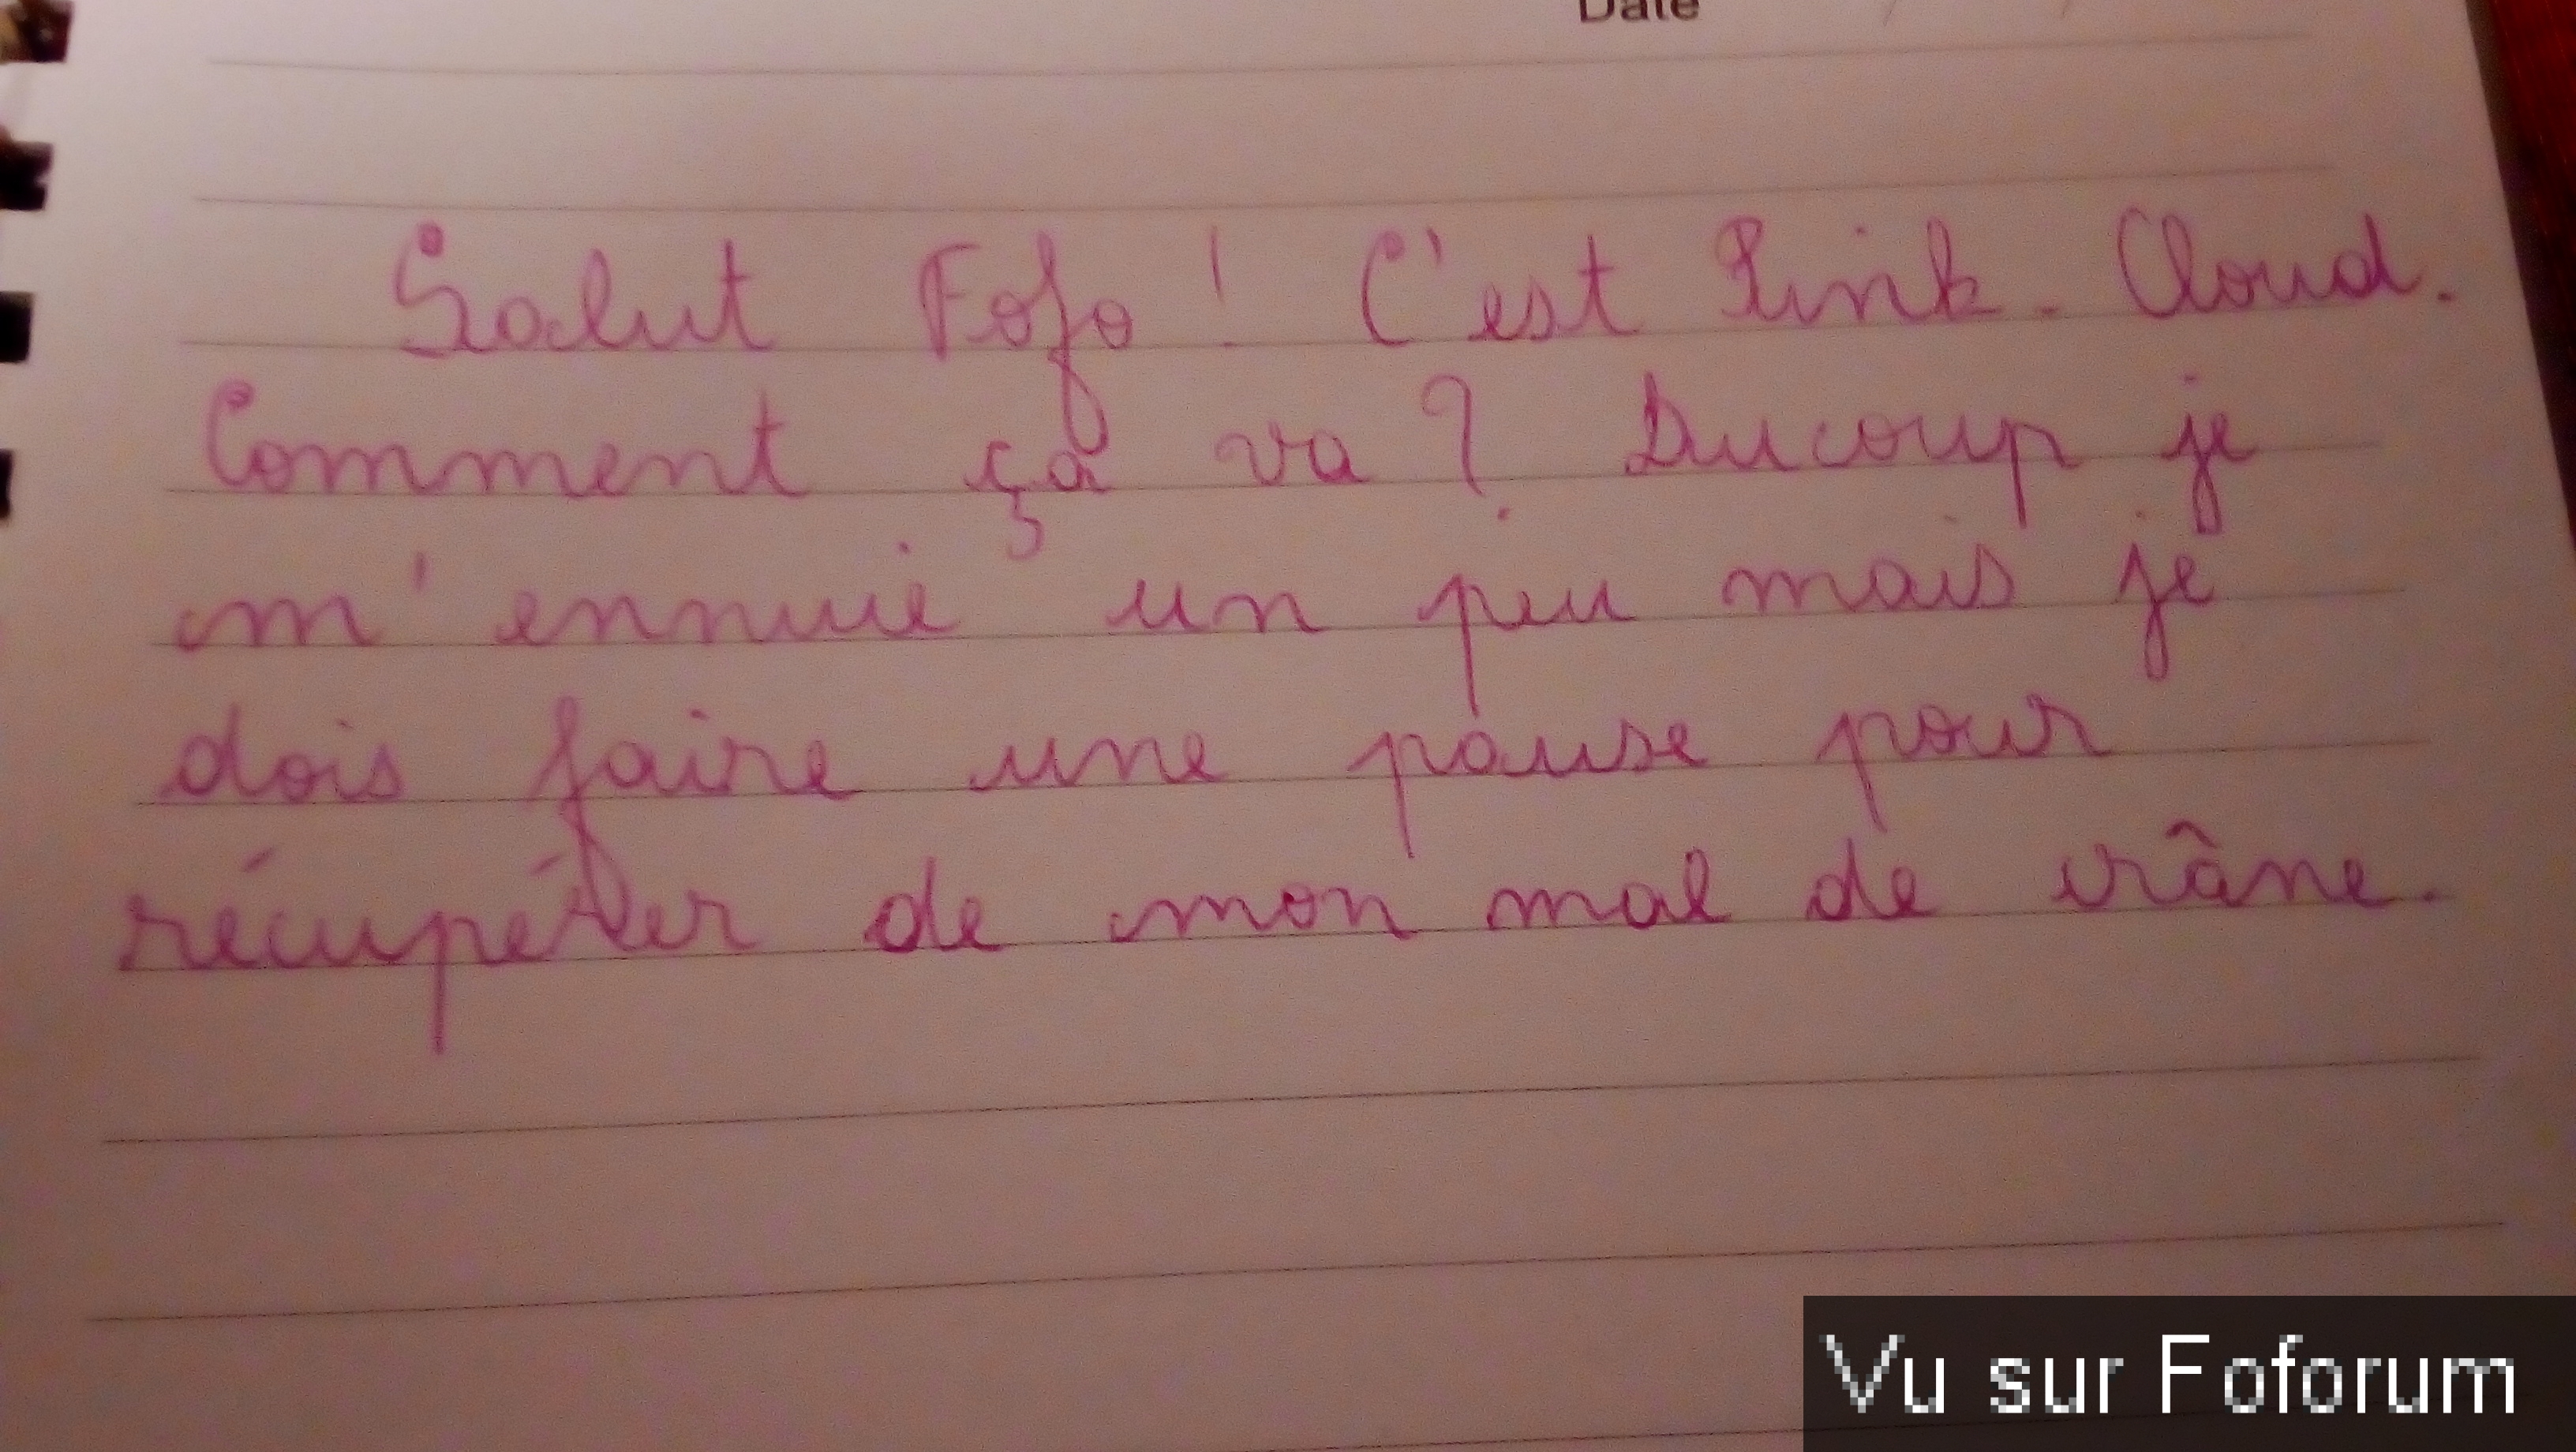 Date
Salut Fofo ! C'est Pink-Cloud.
Comment ça va ? Ducoup je
m'ennuie un peu mais je
dois faire une pause pour
récupérer de mon mal de crâne.
Vu sur Foforum